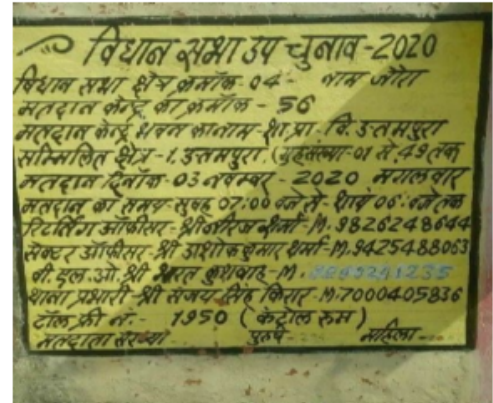 विधान सभा उप चुनाव-2020
विधान सभा क्षेत्र क्रमाँक-04- नाम जौरा
मतदान केन्द्र का क्रमाँक - 56
मतदान केन्द्र भवन का नाम-शा.प्रा.वि.उत्तमपुरा
सम्मिलित क्षेत्र-1.उत्तमपुरा,(गृहसंख्या-01 से 49 तक
मतदान दिनाँक-03 नवम्बर-2020 मंगलवार
मतदान का समय-सुबह 07:00 बजे से-शायं 06: बजे तक
रिटर्निंग ऑफीसर-श्री नीरज शर्मा-M.9826248644
सेक्टर ऑफीसर-श्री अशोक कुमार शर्मा-M.9425488063
बी.एल.ओ.श्री भरत कुशवाह-M.
थाना प्रभारी-श्री संजय सिंह किरार-M.7000405836
टॉल फ्री नं.- 1950 (कंट्रोल रुम)
मतदाता संख्या- पुरुष- महिला-